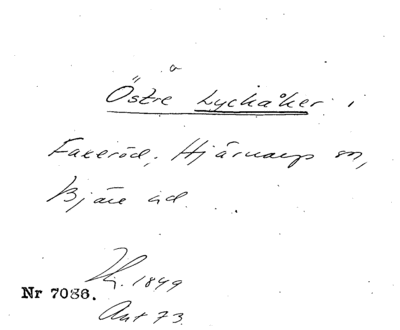 Östre Lyckåker i
Faxeröd, Hjärnarps sn,
Bjäre hd.
Hj. 1849
Nr 7086.
Akt 73.